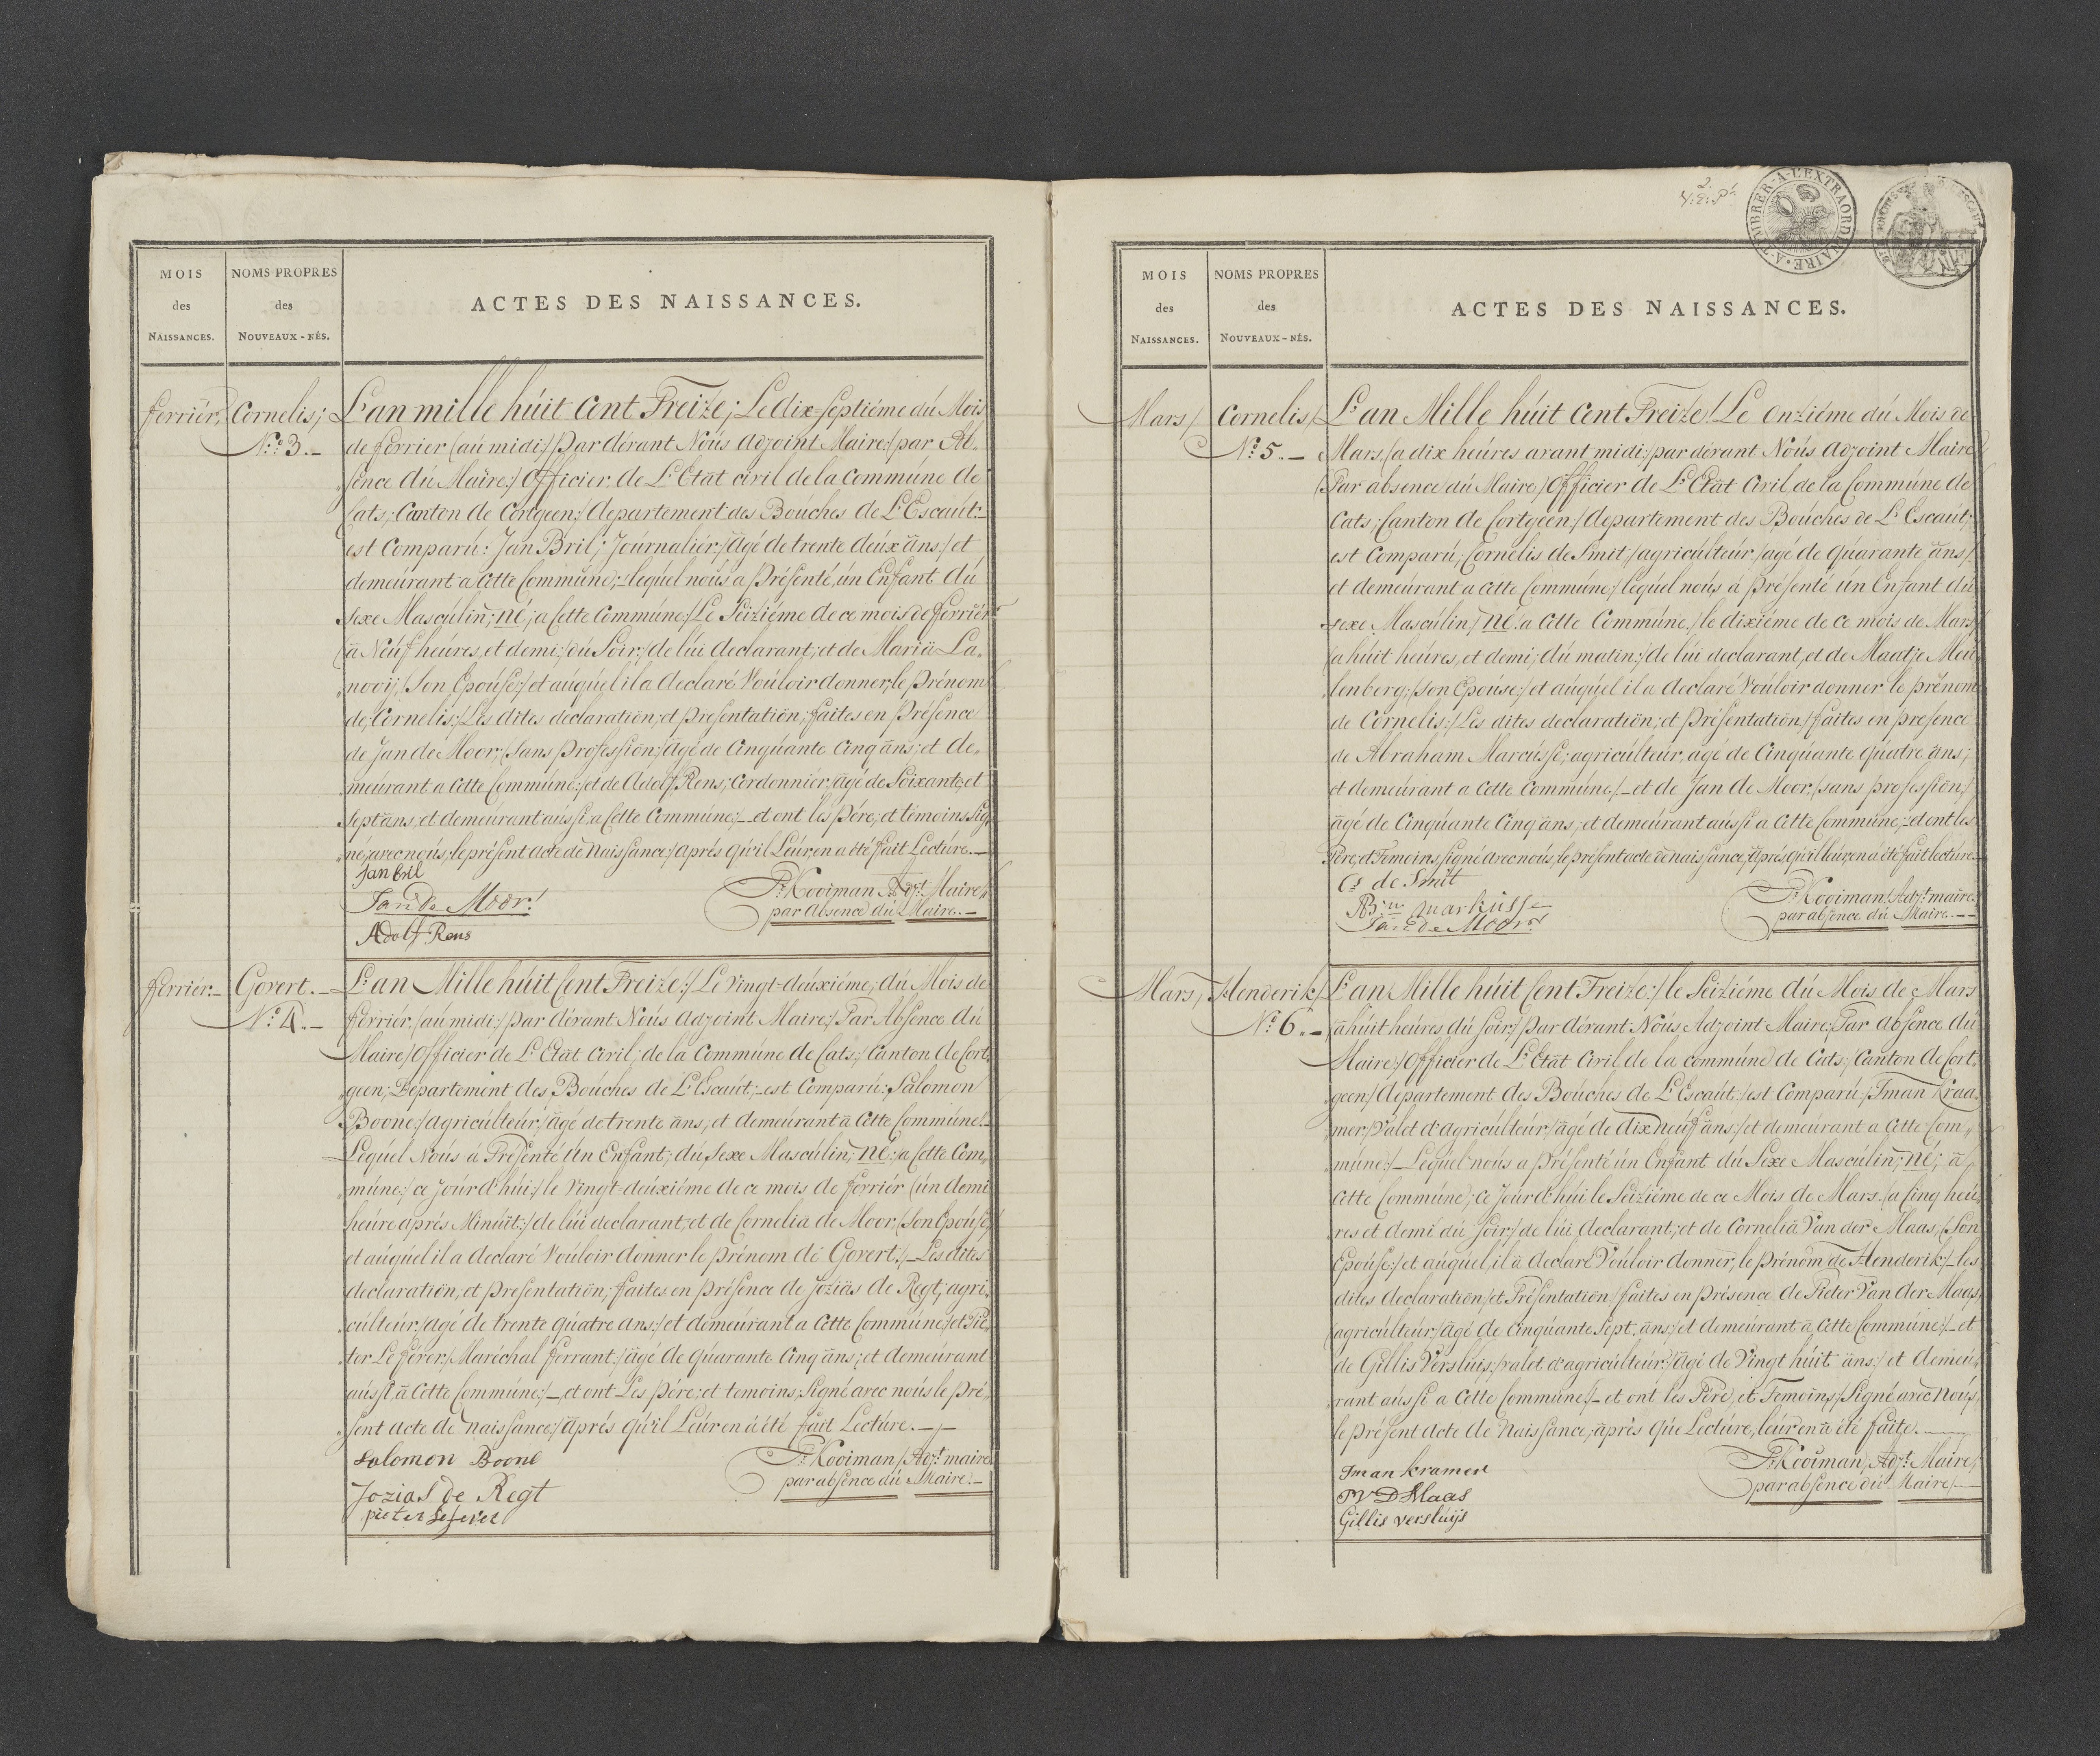 MOIS
des
NAISSANCES.
NOMS PROPRES
des
NOUVEAUX-NÉS.
ACTES DES NAISSANCES.
ferriér;
Cornelis;
N.º 3.-
L'an mille húit Cent Treize; Le dix-septiéme dú Mois
de ferrier (aú midi:/ Par dérant Noús Adjoint Maire:/ par Ab„
„sence dú Maire:/ Officier de L'Etat ciril de la Commúne de
Cats; Canton de Cortgeen:/ departement des Boúches de L'Escaút:-
est Comparú: Jan Bril; Joúrnaliér:/ agé de trente deúx ans:/ et
demeúrant a Cette Commúne;- leqúel noús a Présenté, ún Enfant dú
sexe Mascúlin; né; a Cette Commúne:/ Le Seiziéme de ce mois de ferriér
(a Neúf heúres, et demi:/ dú Soir:/ de lúi declarant; et de Maria La„
„nooij, / Son Epoúse:/ et aúqúel il a declaré Voúloir donner, le Prénom
de, Cornelis:/ Les dites declaration; et presentation; faites en Présence
de Jan de Moor; / Sans Profession; / agé de Cinqúante Cinq ans: et de„
„meúrant a Cette Commúne:/ et de Adolf Rens; Cordonniér, agé de Soixante, et
Sept ans, et demeurant aússi a Cette Commúne;- et ont les Pére; et témoins sig„
„né; avec noús, le présent acte de Naissance:/ Aprés qú'il Leúr, en a été fait Lectúre.-
Jan bril
Jan de Moor!
Adolf Rens
P.r Kooiman Adj.t Maire,
par absence dú Maire.-
ferriér:-
Govert.-
N.º 4.-
L'an Mille húit Cent Treize:/ Le Vingt-deúxiéme; dú Mois de
ferriér. (aú midi:/ Par dérant Noús Adjoint Maire:/ Par Absence dú
Maire/ Officier de L'Etat Ciril; de la Commúne de Cats:/ Canton de Cort„
„geen; Departement des Boúches de L'Escaút;- est Comparú: Salomon
Boone:/ Agricúlteúr; / agé de trente ans; et demeúrant à Cette Commúne!-
Leqúel Noús à Présenté Ún Enfant; dú Sexe Mascúlin; né: a Cette Com„
„múne:/ ce Joúrd'húi:/ le Vingt-deúxiéme de ce mois de ferriér (ún demi
heúre aprés Minúit:/ de lúi declarant; et de Cornelia de Moor, / Son Epoúse /
et aúqúel il a declaré Voúloir donner le prénom de Govert:/- Les dites
declaration, et presentation; faites en Présence de Jozias de Regt; agri„
„cúlteúr:/ agé de trente qúatre ans:/ et demeúrant a Cette Commúne:/ et Pie„
„ter Le ferer:/ Maréchal ferrant:/ agé de Qúarante Cinq ans; et demeúrant
aússi, à Cette Commúne:/- et ont Les Pére; et temoins; Signé avec noús le Pré„
„sent acte de Naissance:/ Aprés qú'il Leúr en à été fait Lectúre.-,-
Salomon Boone
Jozias de Regt
pieter Lefever
P.r Kooiman / Adj.t maire
par absence dú Maire.-
2
A TIMBRER A L'EXTRAORDINAIRE
MOIS
des
NAISSANCES.
NOMS PROPRES
des
NOUVEAUX-NÉS.
ACTES DES NAISSANCES.
Mars/
Cornelis/
N.º 5.-
L'an Mille húit Cent Treize! Le Onziéme dú Mois de
Mars, (a dix heúres arant midi:/ par dérant Noús Adjoint Maire
(Par absence dú Maire/ Officier de L'Etat Ciril, de la Commúne de
Cats; Canton de Cortgeen:/ departement des Boúches de L'Escaút;
est Comparú; Cornelis de Smit / agricúlteúr / agé de Qúarante ans/
et demeúrant a Cette Commúne:/ leqúel noús à Présenté ún Enfant dú
sexe Mascúlin / né. a Cette Commúne:/ le dixiéme de ce mois de Mars/
(a húit heúres, et demi; dú matin:/ de lúi declarant, et de Maatje Meú„
„lenberg; / son Epoúse:/ et aúqúel il a declaré Voúloir donner le prénom
de Cornelis:/ Les dites declaration; et Présentation / faites en presence
de Abraham Marcússe; agricúlteúr, agé de Cinqúante qúatre ans;
et demeúrant a Cette Commúne/- et de Jan de Moor, / sans profession/
agé de Cinqúante Cinq ans; et demeúrant aússi a Cette Commúne;- et ont les
Pére; et Temoins, signé avec noús, le présent acte de naissance; aprés qú'il leúr, en a été fait lectúre.
C.s de Smit
AB:m markússe
Jan de Moor
P.r Kooiman / Adj.t maire
par absence dú Maire.--
Mars,
Henderik/
N.º 6.-
L'an Mille húit Cent Treize:/ le Seiziéme dú Mois de Mars
a húit heúres dú soir:/ Par dérant Noús Adjoint Maire; Par absence dú
Maire:/ Officier de L'Etat Ciril de la commúne de Cats; Canton de Cort„
„geen:/ departement des Boúches de L'Escaút:/ est Comparú; Iman Kraa„
„mer / Valet d'agricúlteúr:/ agé de dix neúf ans:/ et demeúrant a Cette Com„
„múne:/- Leqúel noús a Présenté ún Enfant dú Sexe Mascúlin; né; a
Cette Commúne; Ce Joúrd'húi le Seiziéme de ce Mois de Mars. (a Cinq heú„
„res et demi dú Soir:/ de lúi declarant; et de Cornelia Van der Maas, / Son
Epoúse:/ et aúqúel, il à declaré Voúloir donner, le Prénom de Henderik:/- les
dites declaration / et Présentation / faites en Présence de Pieter Van der Maas,
(agricúlteúr:/ agé de Cinqúante Sept ans:/ et demeúrant à Cette Commúne:/- et
de Gillis Verslúis; / valet d'agricúlteúr:/ agé de Vingt húit ans:/ et demeú„
„rant aússi a Cette Commúne/- et ont les Pere, et Temoins/ Signé avec noús,
le présent acte de Naissance; aprés qúe Lectúre, leúr en a été faite.-
Iman kramer
PVD Maas
Gillis versluijs
P.r Kooiman, Adj.t Maire
par absence dú Maire/-